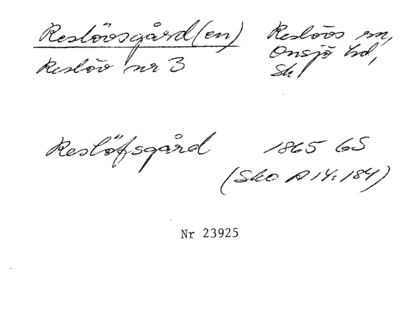 Reslövsgård(en) Reslövs sn,
Reslöv nr 3 Onsjö hd,
Sk
Reslöfsgård 1865 GS
(Sko A 14:184)
Nr 23925